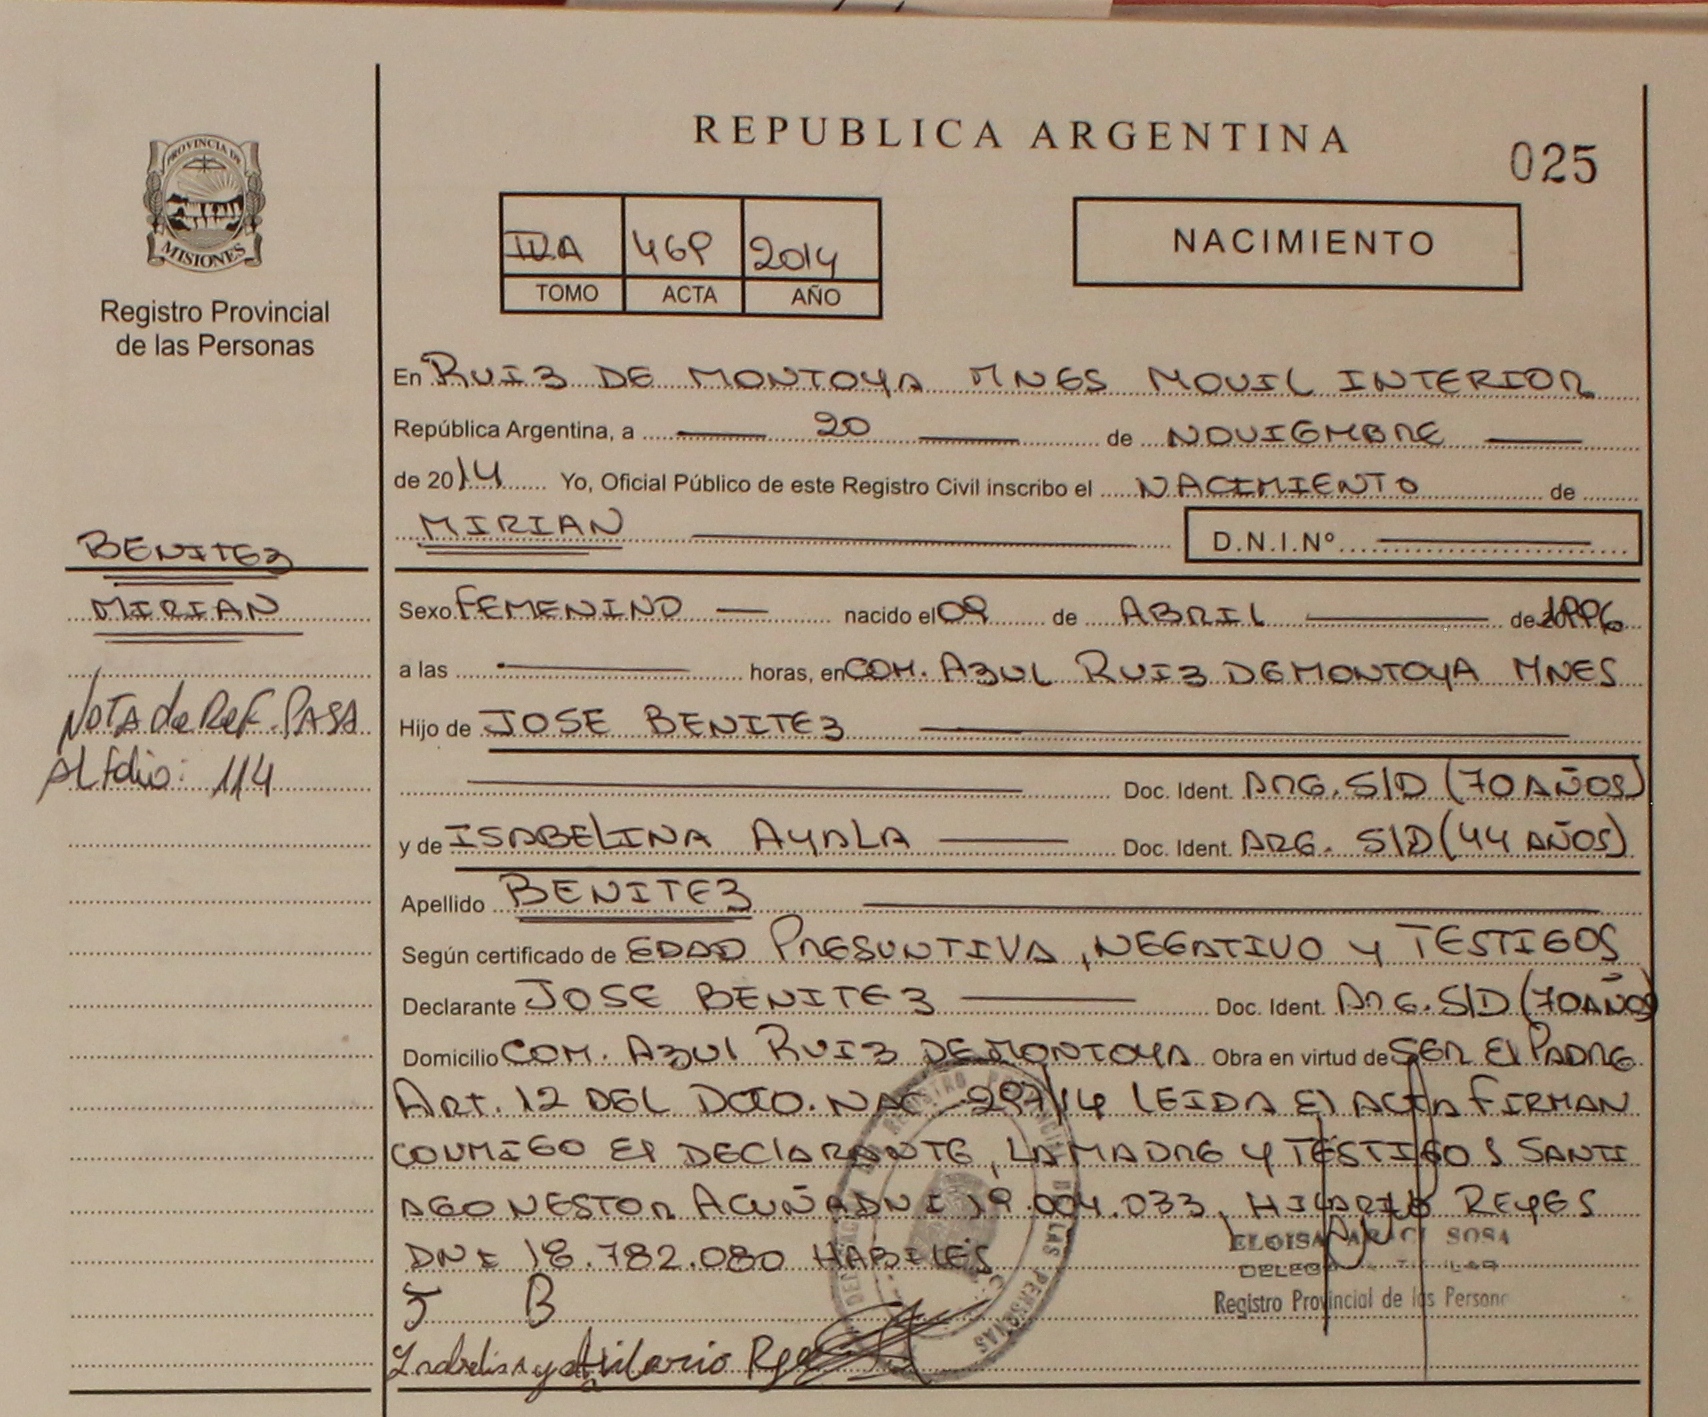 REPUBLICA ARGENTINA
025
PROVINCIA DE
MISIONES
Registro Provincial
de las Personas
469 2014
TOMO ACTA AÑO
NACIMIENTO
En RUIZ DE MONTOYA MNES MOVIL INTERIOR
República Argentina, a 20 de NOVIEMBRE
de 2014 Yo, Oficial Público de este Registro Civil inscribo el NACIMIENTO de
MIRIAN D.N.I.Nº
BENITEZ
MIRIAN
NOTA de REF. PASA
Al folio: 114
Sexo FEMENINO nacido el 09 de ABRIL de 1996
a las horas, en COM. AZUL RUIZ DE MONTOYA MNES
Hijo de JOSE BENITEZ
Doc. Ident. ARG. S/D (70 AÑOS)
y de ISABELINA AYALA Doc. Ident. ARG. S/D (44 AÑOS)
Apellido BENITEZ
Según certificado de EDAD PRESUNTIVA, NEGATIVO Y TESTIGOS
Declarante JOSE BENITEZ Doc. Ident. ARG. S/D (70 AÑOS)
Domicilio COM. AZUL RUIZ DE MONTOYA Obra en virtud de SER El PADRE
ART. 12 DEL DCTO. NAC 297/14 LEIDA El ACTA FIRMAN
CONMIGO El DECLARANTE, LA MADRE Y TESTIGOS SANTI
AGO NESTOR ACUÑA DNI 19.004.033, HILARIO REYES
DNI 18.782.080 HABILES
ELOISA ARACI SOSA
Registro Provincial de las Persona
J B
Hilario